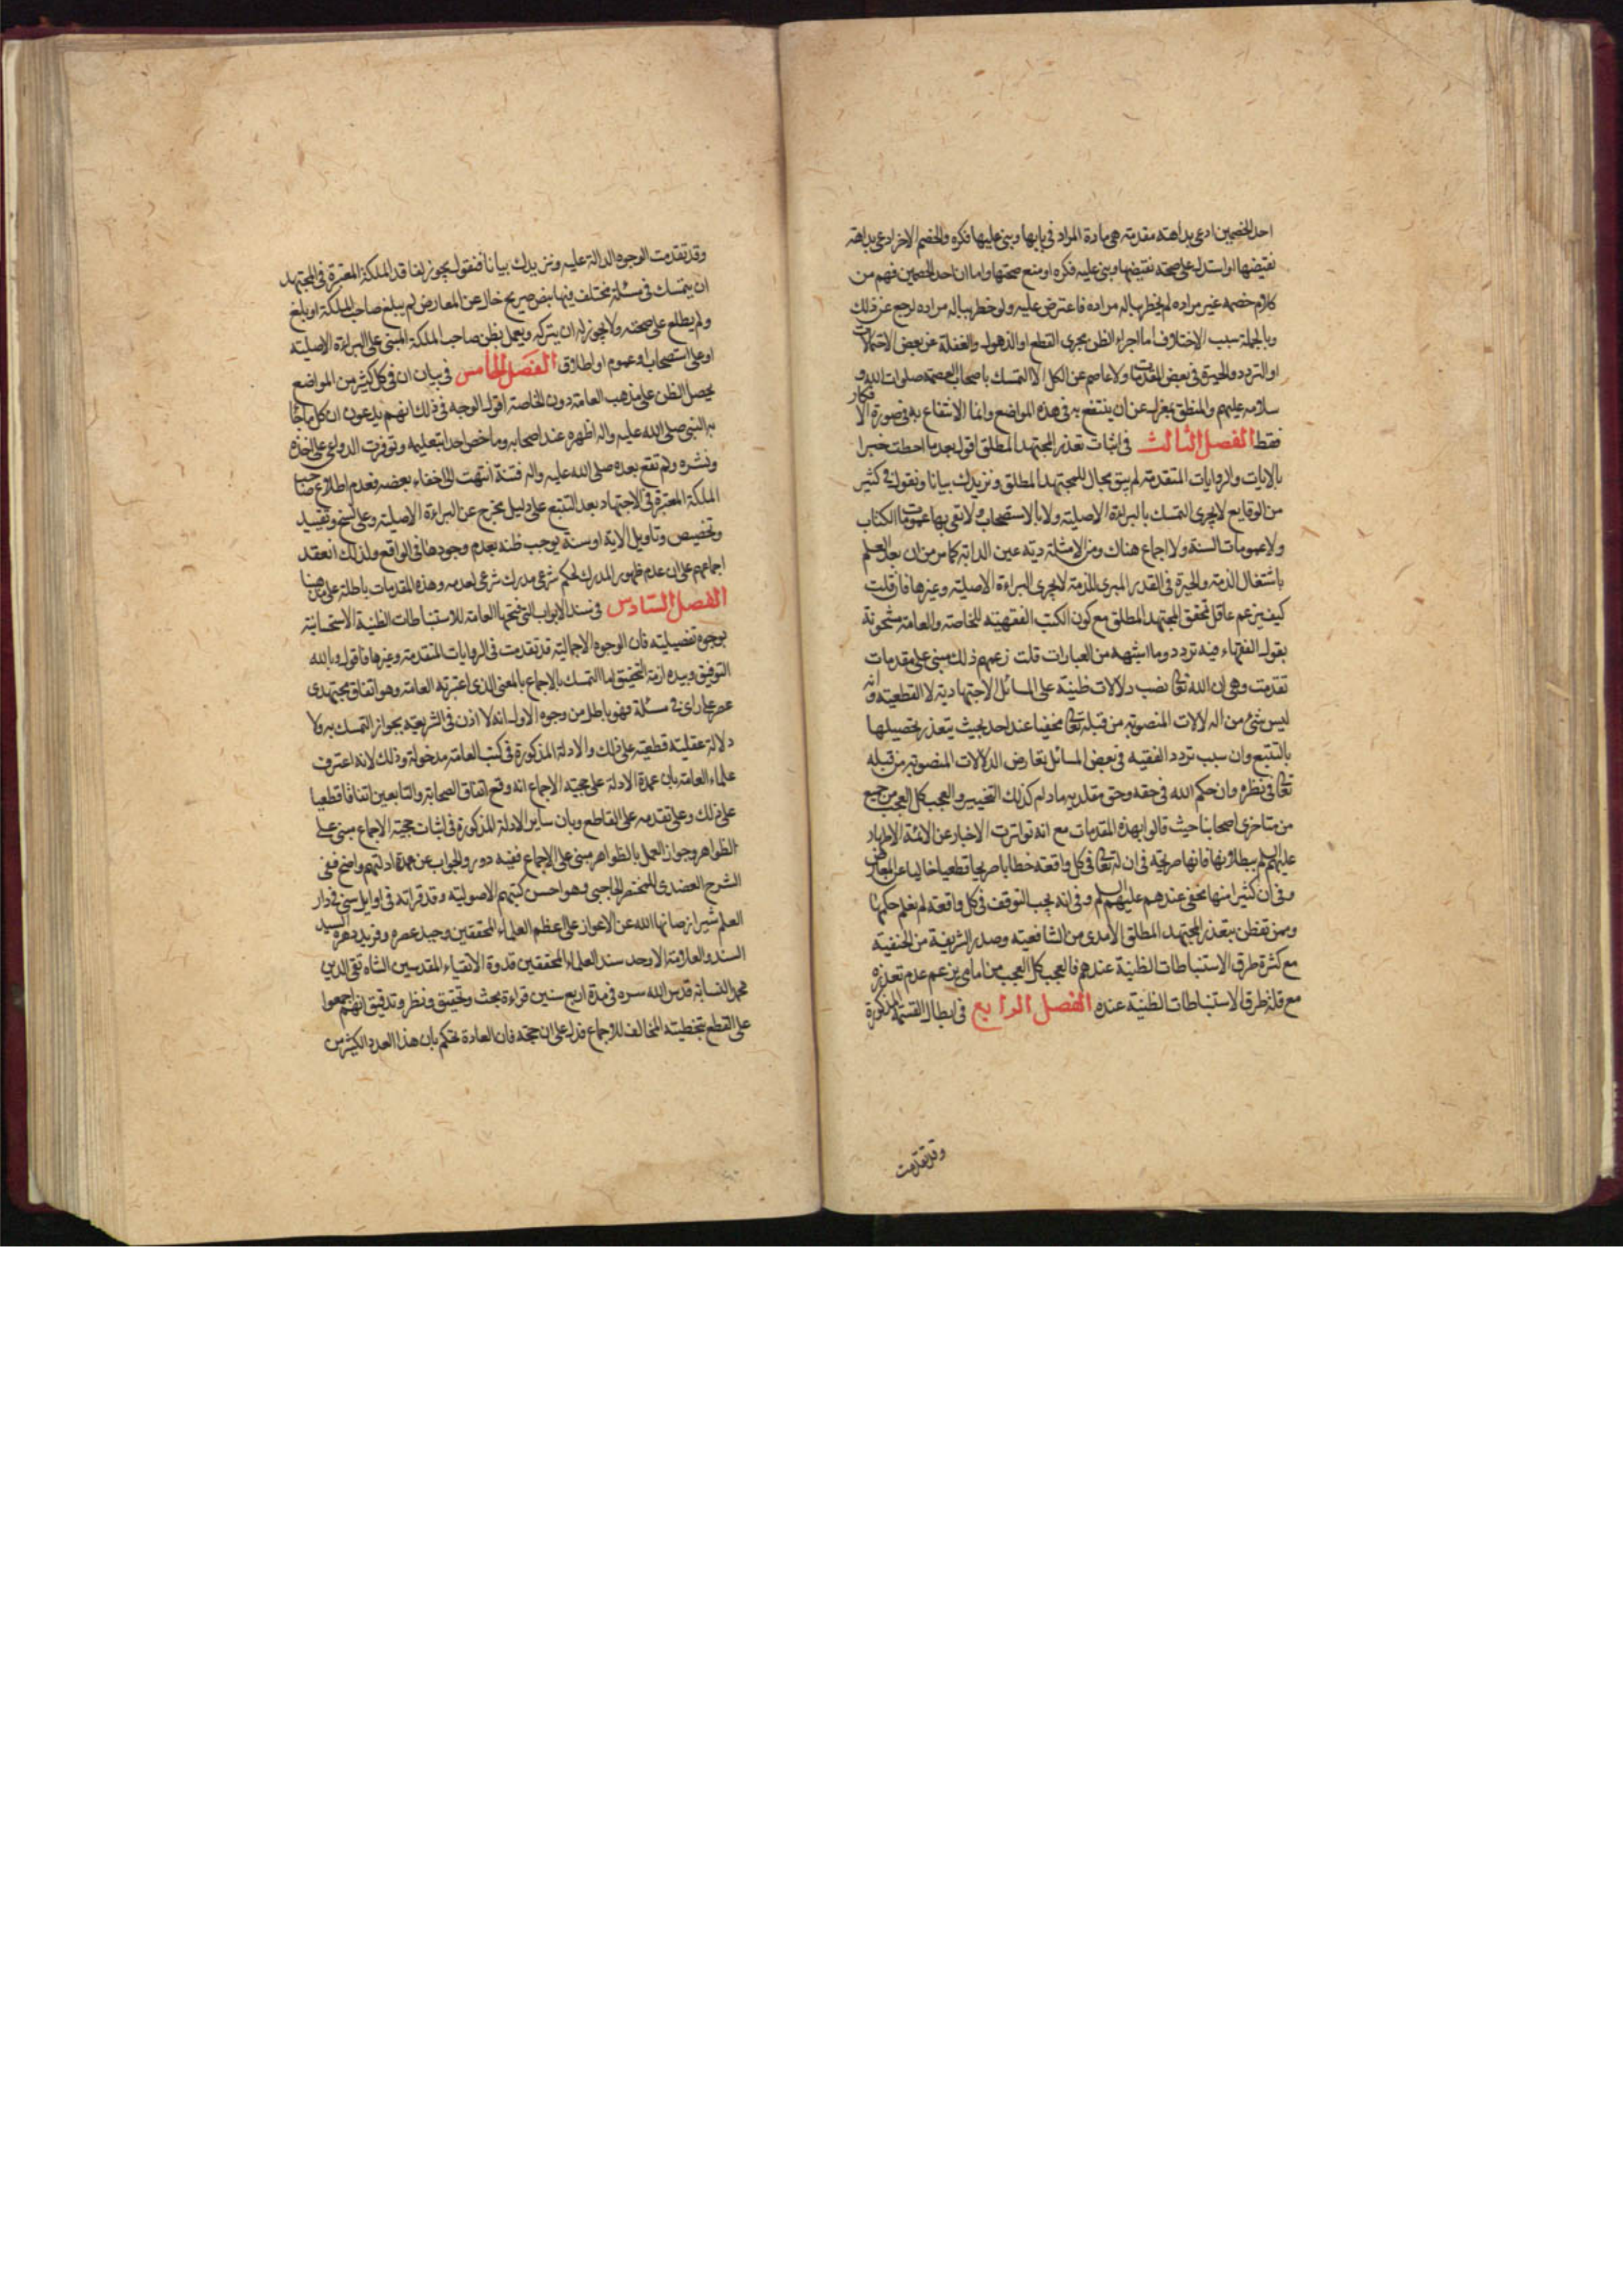 احد الخصمين ادعى بداهته مقدمة هى مادة المواد فى بابها وبنى عليها فكره والخصم الاخر ادعى بداهة
نقيضها او استدل على صحة نقيضها وبنى عليه فكره او منع صحتها واما ان احد الخصمين فهم من
كلام خصمه غير مراده لم يخطر بباله مراده فاعترض عليه ولو خطر بباله مراده لرجع عن ذلك
وبالجملة سبب الاختلاف اما اجراء الظن مجرى القطع او الذهول والغفلة عن بعض الاحتمالات
او التردد والحيرة فى بعض المقدمات ولا عاصم عن الكل الا التمسك باصحاب العصمة صلوات الله و
سلامه عليهم والمنطق بمعزل عن ان ينتفع به فى هذه المواضع وانما الانتفاع به فى صورة الافكار
فقط الفصل الثالث فى اثبات تعذر المجتهد المطلق اقول بعد ما احطت خبرا
بالايات والروايات المتقدمة لم يبق مجال للمجتهد المطلق ونزيدك بيانا ونقول فى كثير
من الوقايع لا يجرى التمسك بالبراءة الاصلية ولا بالاستصحاب ولا تفى بها عمومات الكتاب
ولا عمومات السنة ولا اجماع هناك ومن الامثلة دية عين الدابة كما مر من ان بعد العلم
باشتغال الذمة والحيرة فى القدر المبرى للذمة لا يجرى البراءة الاصلية وغيرها فان قلت
كيف يزعم عاقل تحقق المجتهد المطلق مع كون الكتب الفقهية للخاصة والعامة مشحونة
بقول الفقهاء فيه تردد وما اشبهه من العبارات قلت زعمهم ذلك مبنى على مقدمات
تقدمت وهى ان الله تعالى نصب دلالات ظنية على المسائل الاجتهادية لا القطعية وانه
ليس شئ من الدلالات المنصوبة من قبله تعالى مخفيا عند احد بحيث يتعذر تحصيلها
بالتتبع وان سبب تردد الفقيه فى بعض المسائل تعارض الدلالات المنصوبة من قبله
تعالى فى نظره وان حكم الله فى حقه وحق مقلديه مادام كذلك التخيير والعجب كل العجب من جمع
من متاخرى اصحابنا حيث قالوا بهذه المقدمات مع انه تواترت الاخبار عن الائمة الاطهار
عليهم السلم ببطلانها فانها صريحة فى ان له تعالى فى كل واقعة خطابا صريحا قطعيا خاليا عن المعارض
وفى ان كثيرا منها مخفى عندهم عليهم السلم وفى انه يجب التوقف فى كل واقعة لم نعلم حكمها
وممن تفطن بتعذر المجتهد المطلق الامدى من الشافعية وصدر الشريعة من الحنفية
مع كثرة طرق الاستنباطات الظنية عندهم فالعجب كل العجب من امامى يزعم عدم تعذره
مع قلة طرق الاستنباطات الظنية عنده الفصل الرابع فى ابطال القسمة المذكورة
وقد تقدمت
وقد تقدمت الوجوه الدالة عليه ونزيدك بيانا فنقول يجوز لفاقد الملكة المعتبرة فى المجتهد
ان يتمسك فى مسئلة مختلف فيها بنص صريح خال عن المعارض لم يبلغ صاحب الملكة او بلغ
ولم يطلع على صحته ولا يجوز له ان يتركه ويعمل بظن صاحب الملكة المبنى على البراءة الاصلية
او على استصحاب او عموم او اطلاق الفصل الخامس فى بيان ان فى كل كثير من المواضع
يحصل الظن على مذهب العامة دون الخاصة اقول الوجه فى ذلك انهم يدعون ان كل ما جاء
به النبى صلى الله عليه واله اظهره عند اصحابه وما خص احدا بتعليمه وتوفرت الدواعى على اخذه
ونشره ولم تقع بعده صلى الله عليه واله فتنة انتهت الى اخفاء بعضه فعدم اطلاع صاحب
الملكة المعتبرة فى الاجتهاد بعد التتبع على دليل مخرج عن البراءة الاصلية وعلى نسخ وتقييد
وتخصيص وتاويل الاية او سنة يوجب ظنه بعدم وجودها فى الواقع ولذلك انعقد
اجماعهم على ان عدم ظهور المدرك لحكم شرعى مدرك شرعى لعدمه وهذه المقدمات باطلة على مذهبنا
الفصل السادس فى سد الابواب التى فتحها العامة للاستنباطات الظنية الاستحسانية
بوجوه تفصيلية فان الوجوه الاجمالية قد تقدمت فى الروايات المتقدمة وغيرها فاقول وبالله
التوفيق وبيده ازمة التحقيق اما التمسك بالاجماع بالمعنى الذى اعتبرته العامة وهو اتفاق مجتهدى
عصر على راى فى مسئلة فهو باطل من وجوه الاول انه لا اذن فى الشريعة بجواز التمسك به ولا
دلالة عقلية قطعية على ذلك والادلة المذكورة فى كتب العامة مدخولة وذلك لانه اعترف
علماء العامة بان عمدة الادلة على حجية الاجماع انه وقع اتفاق الصحابة والتابعين اتفاقا قطعيا
على ذلك وعلى تقدمه على القاطع وبان ساير الادلة المذكورة فى اثبات حجية الاجماع مبنى على
الظواهر وجواز العمل بالظواهر مبنى على الاجماع ففيه دور والجواب عن عمدة ادلتهم واضح ففى
الشرح العضدى للمختصر الحاجبى وهو احسن كتبهم الاصولية وقد قراته فى اوايل سنى فى دار
العلم شيراز صانها الله عن الاعواز على اعظم العلماء المحققين وحيد عصره وفريد دهره السيد
السند والعلامة الاوحد سند العلماء المحققين قدوة الاتقياء المقدسين الشاه تقى الدين
محمد النسابة قدس الله سره فى مدة اربع سنين قراءة بحث وتحقيق ونظر وتدقيق انهم اجمعوا
على القطع بتخطية المخالف للاجماع فدل على انه حجة فان العادة تحكم بان هذا العدد الكثير من